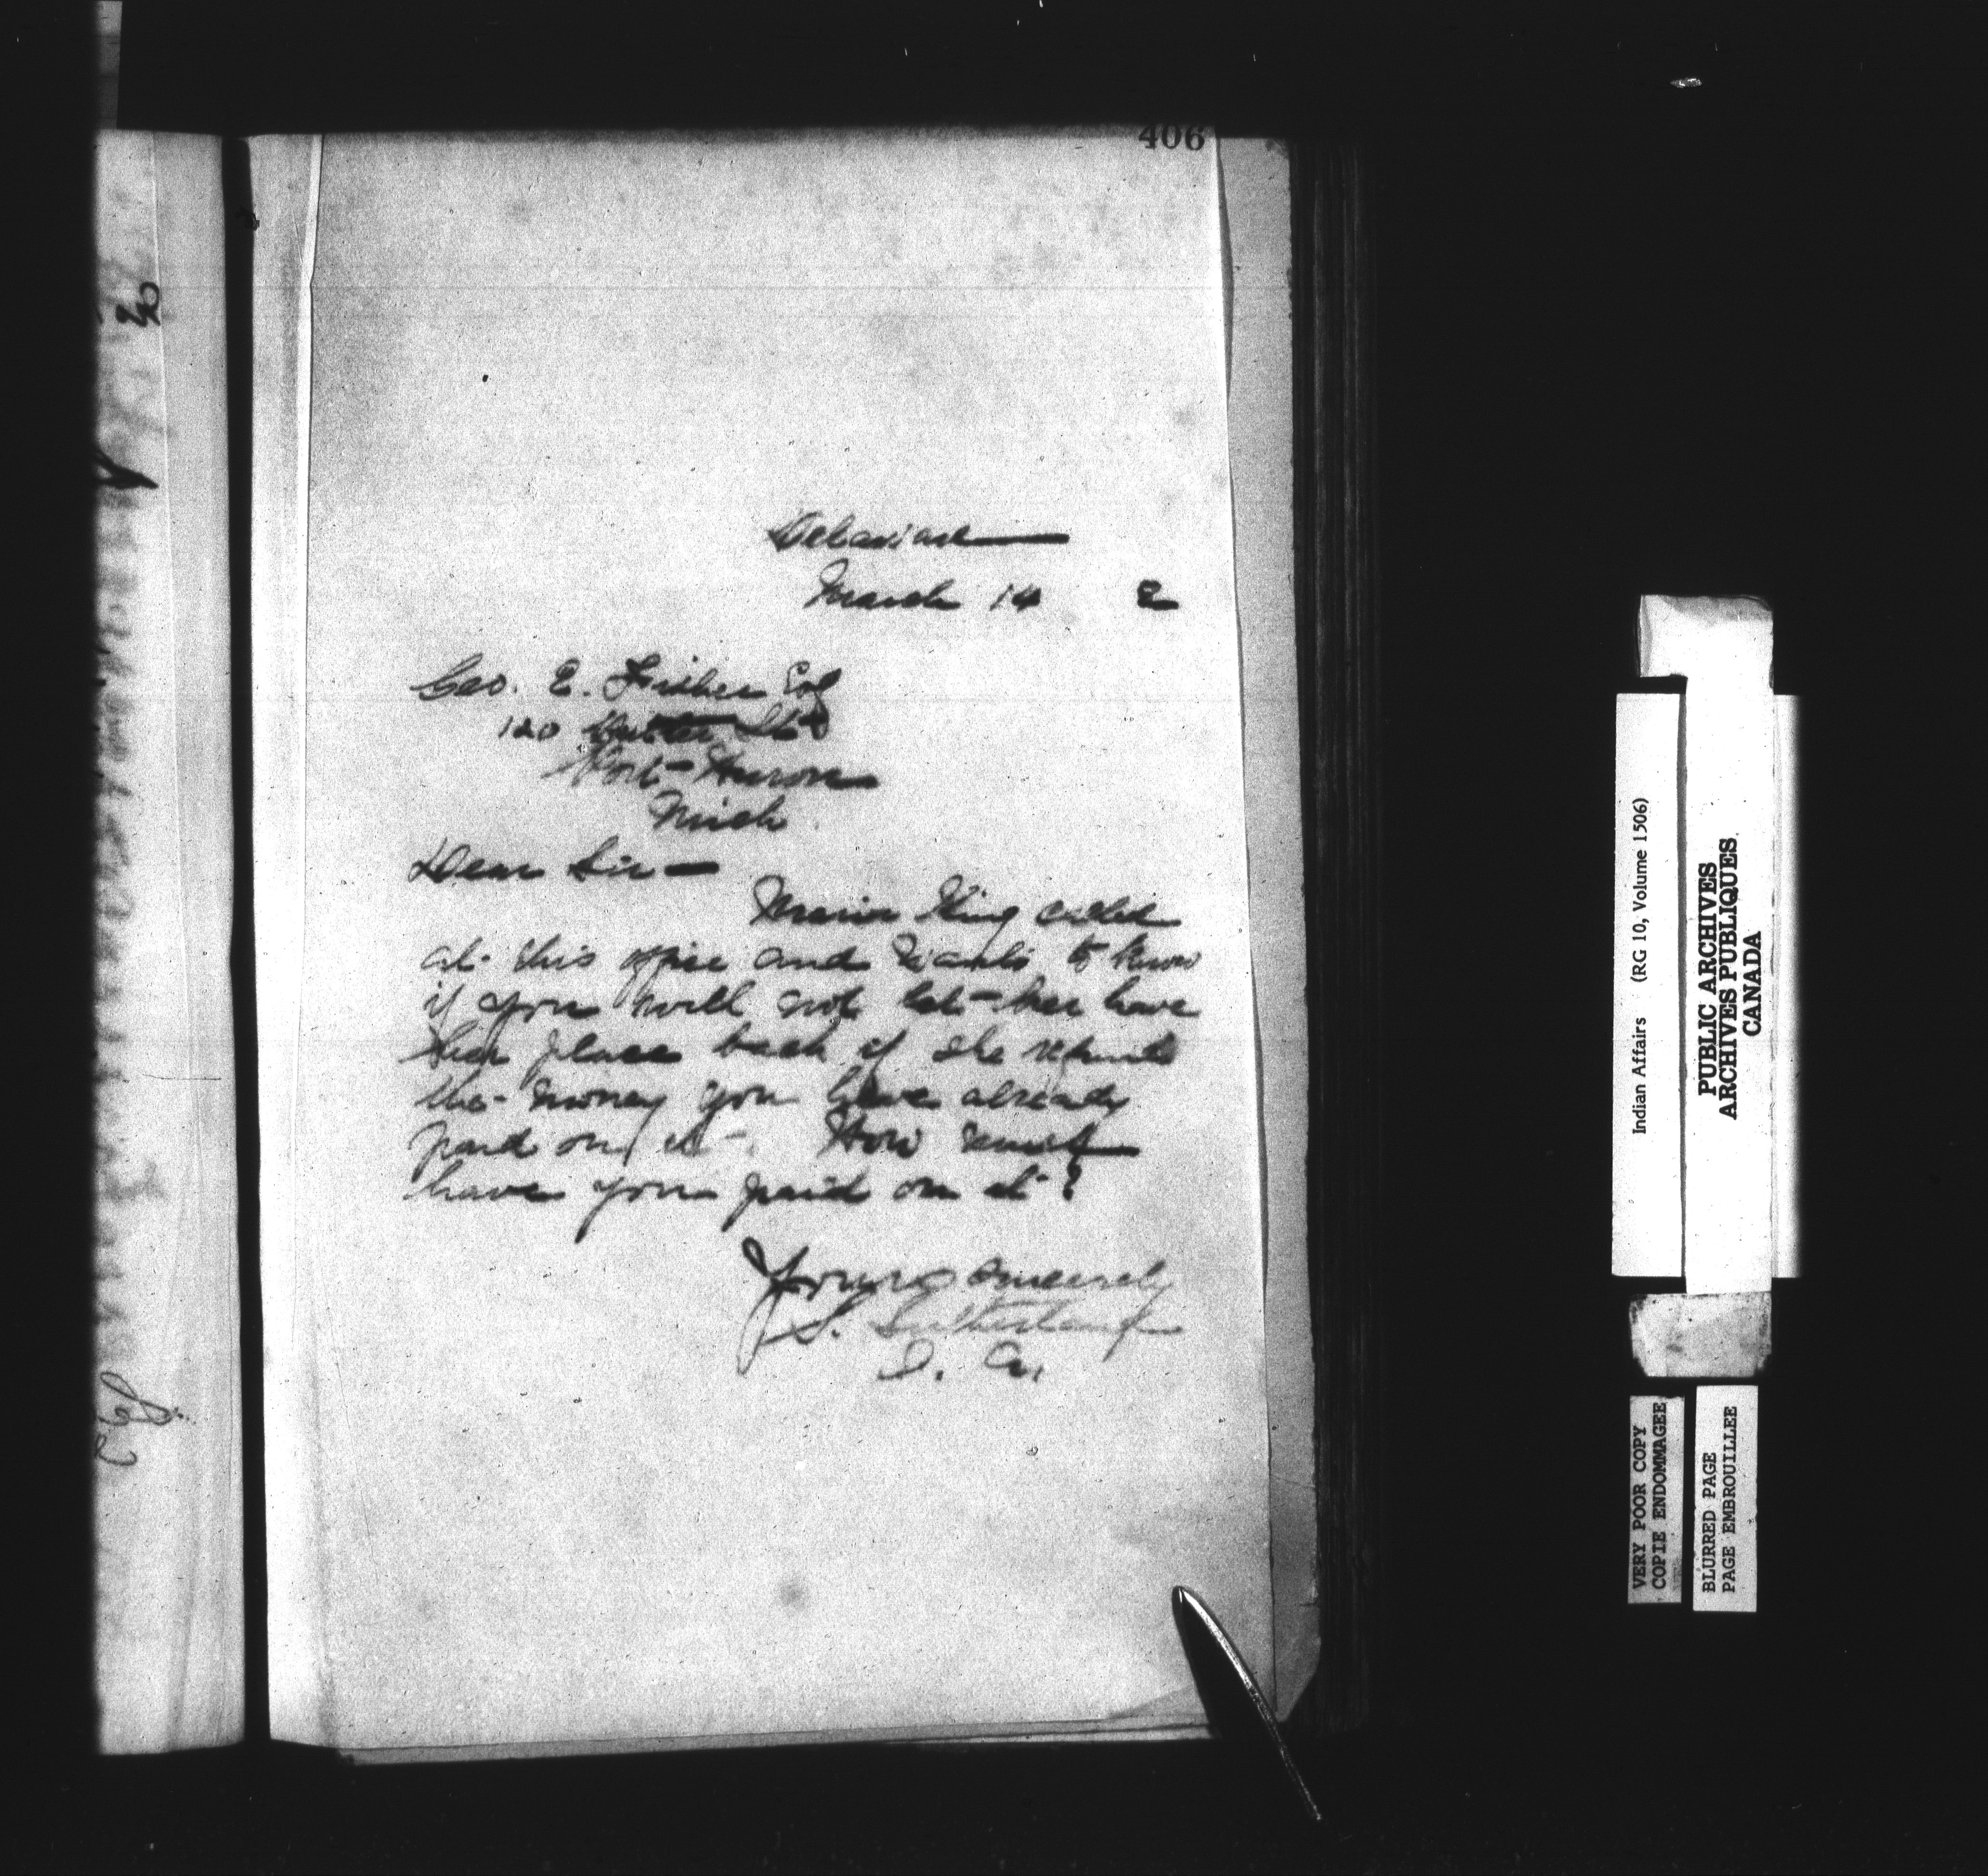 406
Delaware
March 14 2
Geo. E. Fisher Esq
120 St
Port Huron
Mich
Dear Sir —
King called
at this office and wants to know
if you will not let her have
her place back if she refunds
the money you have already
paid on it. How much
have you paid on it?
Yours sincerely
S. Sutherland
I. A.
Indian Affairs (RG 10, Volume 1506)
PUBLIC ARCHIVES
ARCHIVES PUBLIQUES
CANADA
VERY POOR COPY
COPIE ENDOMMAGEE
BLURRED PAGE
PAGE EMBROUILLEE